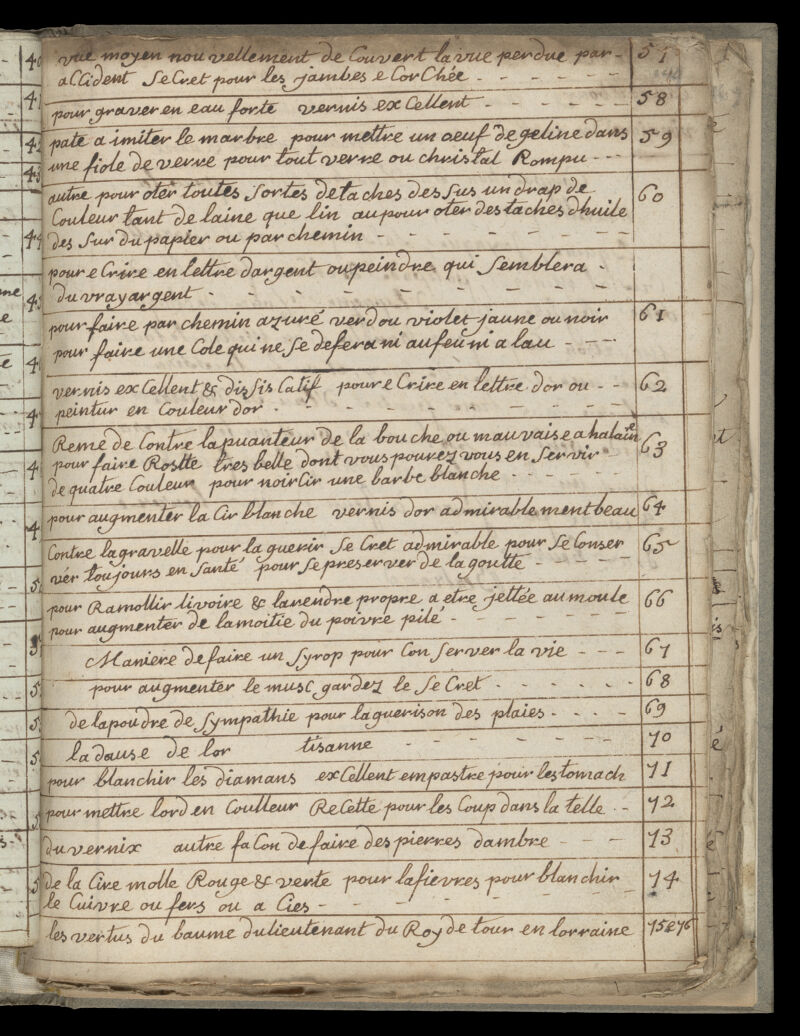 vue moyen nou vellement de Couvert la vue perdue par - 57
accident SeCret pour les jambes eCorChée - - - - -
pour graver en eau forte vernis exCellent - - - - 58
pate a imiter le marbre pour mettre un oeuf de geline dans 59
une fiole de verre pour tout verre ou christal Rompu - - -
autre pour oter toutes Sortes de taches des sus un drap de 60
Couleur tant de laine que lin au pour oter des taches dhuile
des sur du papier ou par chemin - - - - - - -
pour eCrire en lettre dargent ou peindre qui Semblera -
du vray argent - - - - - - - -
pour faire par chemin azuré verd ou violet jaune ou noir 61
pour faire une Cole qui ne Se defera ni au feu ni a lau - - -
vernis exCellent & dissisCatif pour eCrire en lettre dor ou - - 62
peintur en Couleur dor - - - - - - - -
Reme de Contre la puanteur de la bouche ou mauvaise a halaine 63
pour faire Rostte tres belle dont vous pourez vous en Servir
de quatre Couleur pour noirCir une barbe blanche - -
pour augmenter la Cir blanche vernis dor admirablement beau 64
Contre la gravelle pour la guerir SeCret admirable pour Se Conser 65
vér toujours en Santé pour se preserver de la goutte - - - -
pour Ramollir livoire & larendre propre a etre jettée au moule 66
pour augmenter de la moitie du poivre pilé - - - - - -
Maniere de faire un Syrop pour Con Server la vie - - - 67
pour augmenter le musc gardez le SeCret - - - - - - 68
de la poudre de Sympathie pour la guerison des plaies - - - - 69
la dause de lor tisanne - - - - - - 70
pour blanchir les diamans exCellent empastre pour lestomach 71
pour mettre lord en Coulleur ReCette pour les Coup dans la telle - - 72
du vernix autre faCon de faire des pierres dambre - - - 73
de la Cire molle Rouge & verte pour la fievres pour blanchir 74
le Cuivre ou fers ou a Cies - - - - - -
les vertus du baume du lieutenant du Roy de tour en lorraine 75 e 76